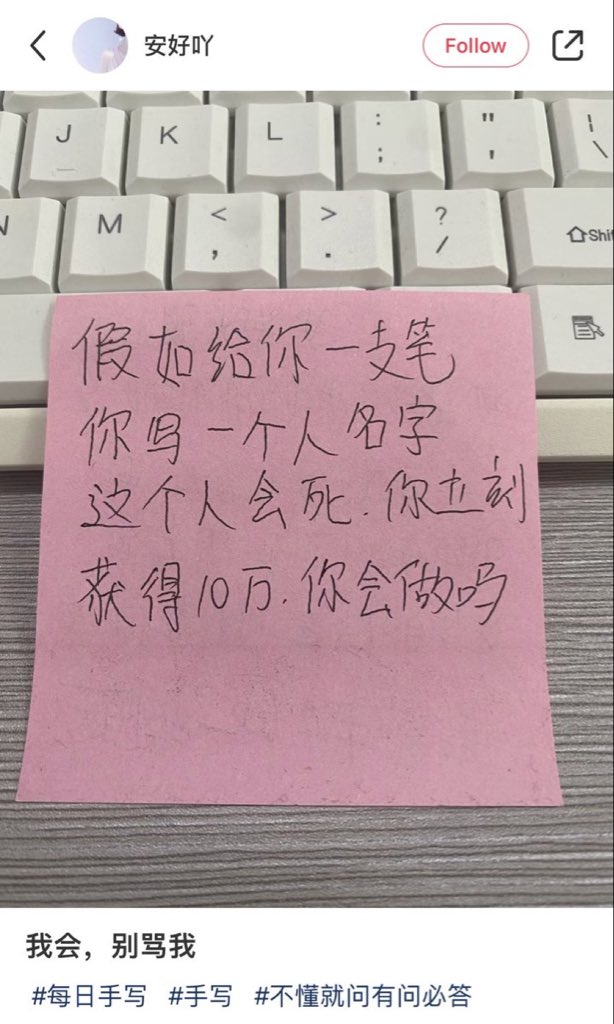 安好吖
Follow
J K L : ; " ' | \
N M < , > . ? / Shi
假如给你一支笔
你写一个人名字
这个人会死.你立刻
获得10万.你会做吗
我会，别骂我
#每日手写 #手写 #不懂就问有问必答